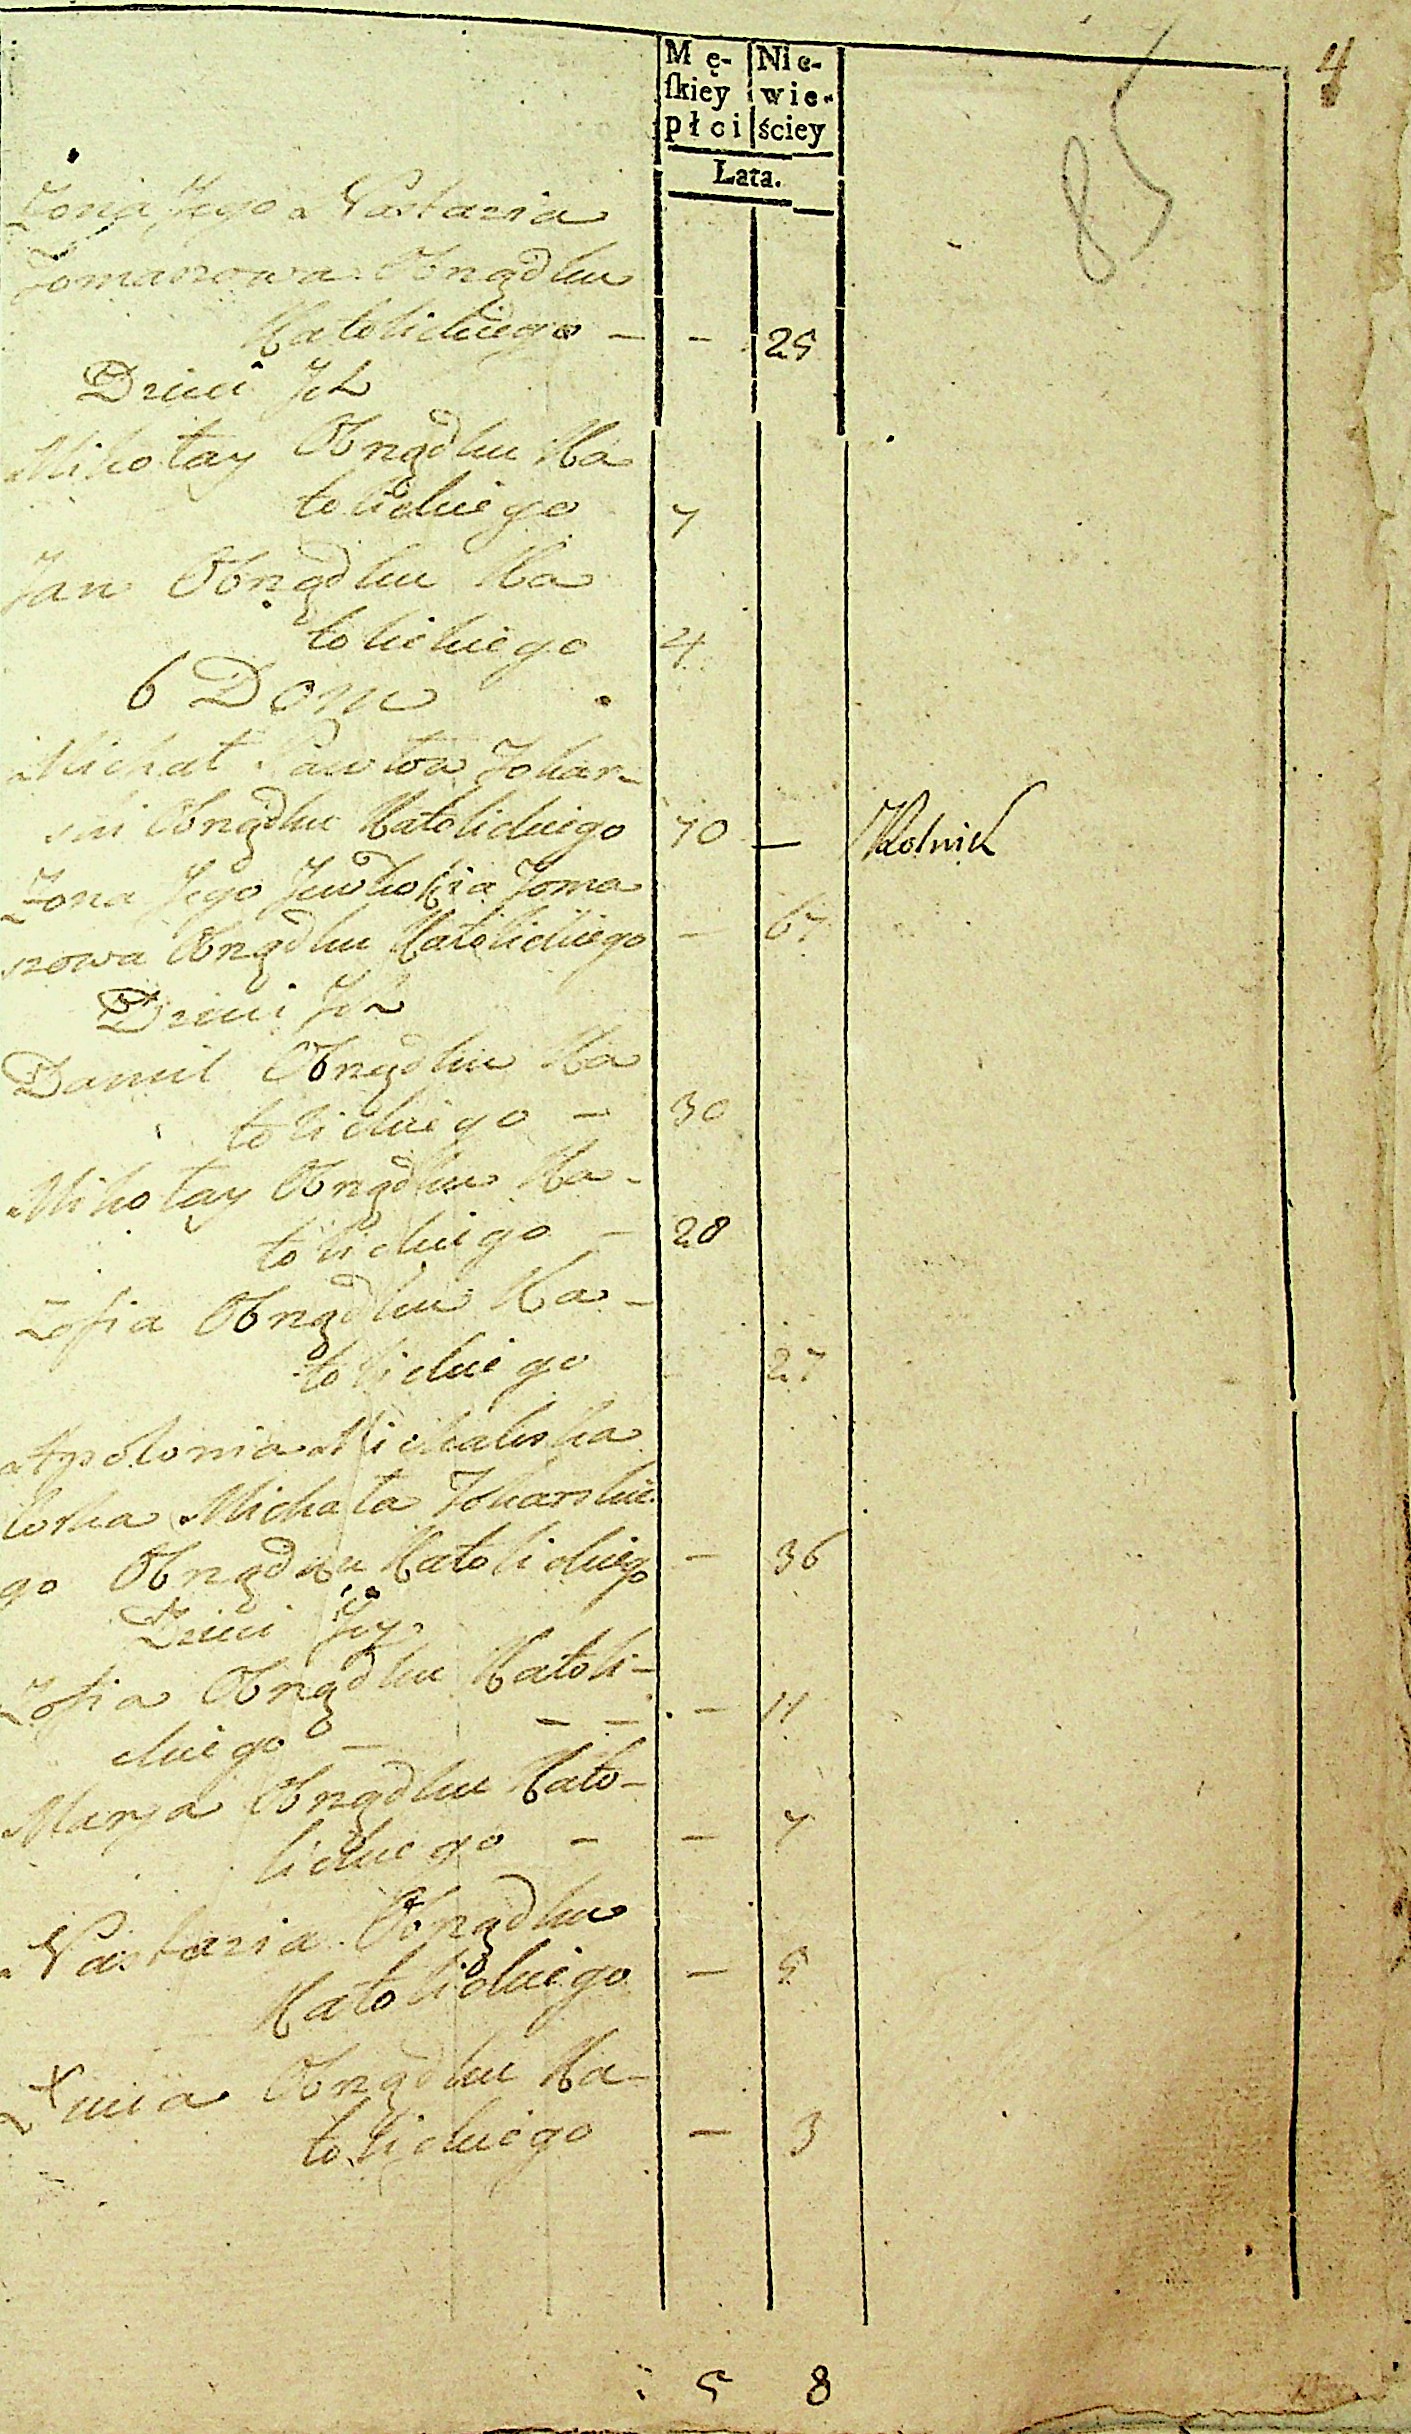 4
85
Mę- Nie-
ſkiey wie-
płci ściey
Lata.
Żona Jego Nastazia
Tomaszowa Obrządku
Katolickiego - - 25
Dzieci Jch
Mikołay Obrządku Ka
tolickiego 7
Jan Obrządku Ka
tolickiego 4
6 Dom
Michał Pawłow Tokar-
ski Obrządku Katolickiego 70 - Rolnik
Żona Jego Toma
szowa Obrządku Katolickiego - 67
Dzieci Jch
Daniil Obrządku Ka
tolickiego - 30
Mikołay Obrządku Ka-
tolickiego - 28
Zofia Obrządku Ka-
tolickiego 27
Apolonia Michalska
Corka Michała Tokarskie
go Obrządku Katolickiego - 36
Dzieci Jey
Zofia Obrządku Katoli-
ckiego - - - - 11
Marya Obrządku Kato-
lickiego - - 7
Nastazia Obrządku
Katolickiego - 5
Obrządku Ka-
tolickiego - 3
5 8